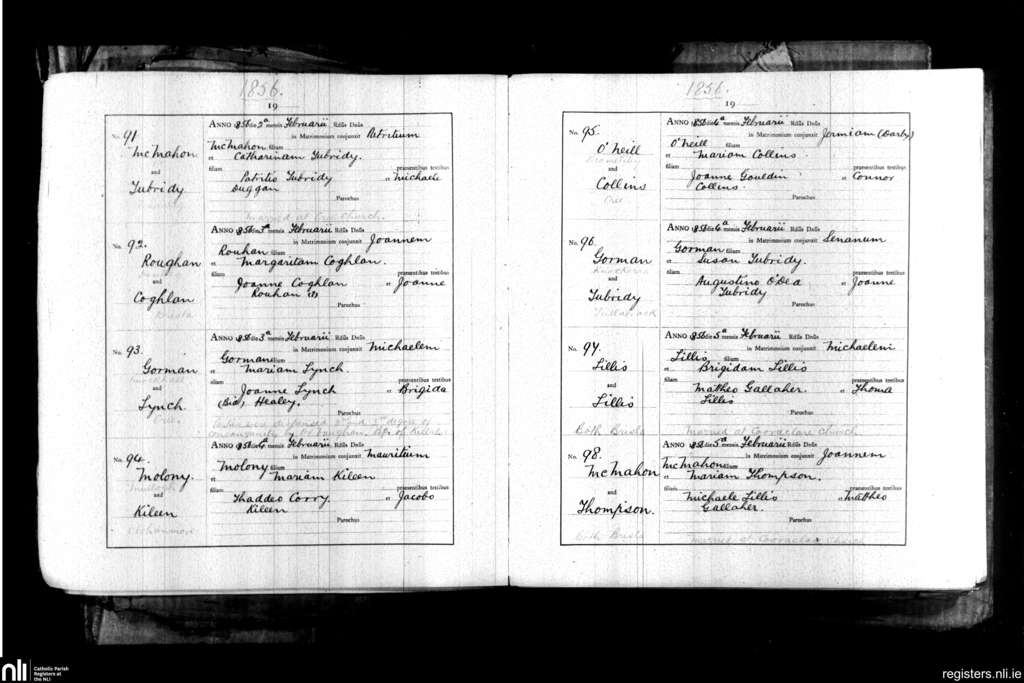 1856.
19
No. 91
McMahon
and
Tubridy
Anno 1856 die 2ª mensis Februarii Rdus Dnus
in Matrimonium conjunxit Patritium
McMahon filium
et Catharinam Tubridy.
filiam praesentibus testibus
Patritio Tubridy et Michaele
Duggan
Parochus
Married at Cree Church.
No. 92.
Roughan
and
Coghlan
Anno 1856 die 3ª mensis Februarii Rdus Dnus
in Matrimonium conjunxit Joannem
Rouhan filium
et Margaritam Coghlan.
filiam praesentibus testibus
Joanne Coghlan et Joanne
Rouhan
Parochus
No. 93.
Gorman
and
Lynch.
Cree.
Anno 1856 die 3ª mensis Februarii Rdus Dnus
in Matrimonium conjunxit Michaelem
Gorman filium
et Mariam Lynch.
filiam praesentibus testibus
Joanne Lynch et Brigida
(Bid) Healey.
Parochus
dispensed 3rd degree of
consanguinity by Dr Vaughan of Killaloe
No. 94.
Molony.
and
Kileen
Anno 1856 die 4ª mensis Februarii Rdus Dnus
in Matrimonium conjunxit Mauritium
Molony filium
et Mariam Kileen
filiam praesentibus testibus
Thaddeo Corry et Jacobo
Kileen
Parochus
1856.
19
No. 95.
O'Neill
and
Collins
Cree
Anno 1856 die 4ª mensis Februarii Rdus Dnus
in Matrimonium conjunxit Jermiam (Darby)
O'Neill filium
et Mariam Collins
filiam praesentibus testibus
Joanne Gouldin et Connor
Collins.
Parochus
No. 96.
Gorman
and
Tubridy
Tullabrack
Anno 1856 die 4ª mensis Februarii Rdus Dnus
in Matrimonium conjunxit Senanum
Gorman filium
et Susan Tubridy.
filiam praesentibus testibus
Augustino O'Dea et Joanne
Tubridy
Parochus
No. 97.
Lillis
and
Lillis
Both Breisla
Anno 1856 die 5ª mensis Februarii Rdus Dnus
in Matrimonium conjunxit Michaelem
Lillis filium
et Brigidam Lillis
filiam praesentibus testibus
Mattheo Gallaher. et Thoma
Lillis
Parochus
Married at Cooraclare Church
No. 98.
McMahon
and
Thompson.
both Breisla
Anno 1856 die 5ª mensis Februarii Rdus Dnus
in Matrimonium conjunxit Joannem
McMahon filium
et Mariam Thompson.
filiam praesentibus testibus
Michaele Lillis et Mattheo
Gallaher.
Parochus
Married at Cooraclare Church
nli
Catholic Parish
Registers at
the NLI
registers.nli.ie